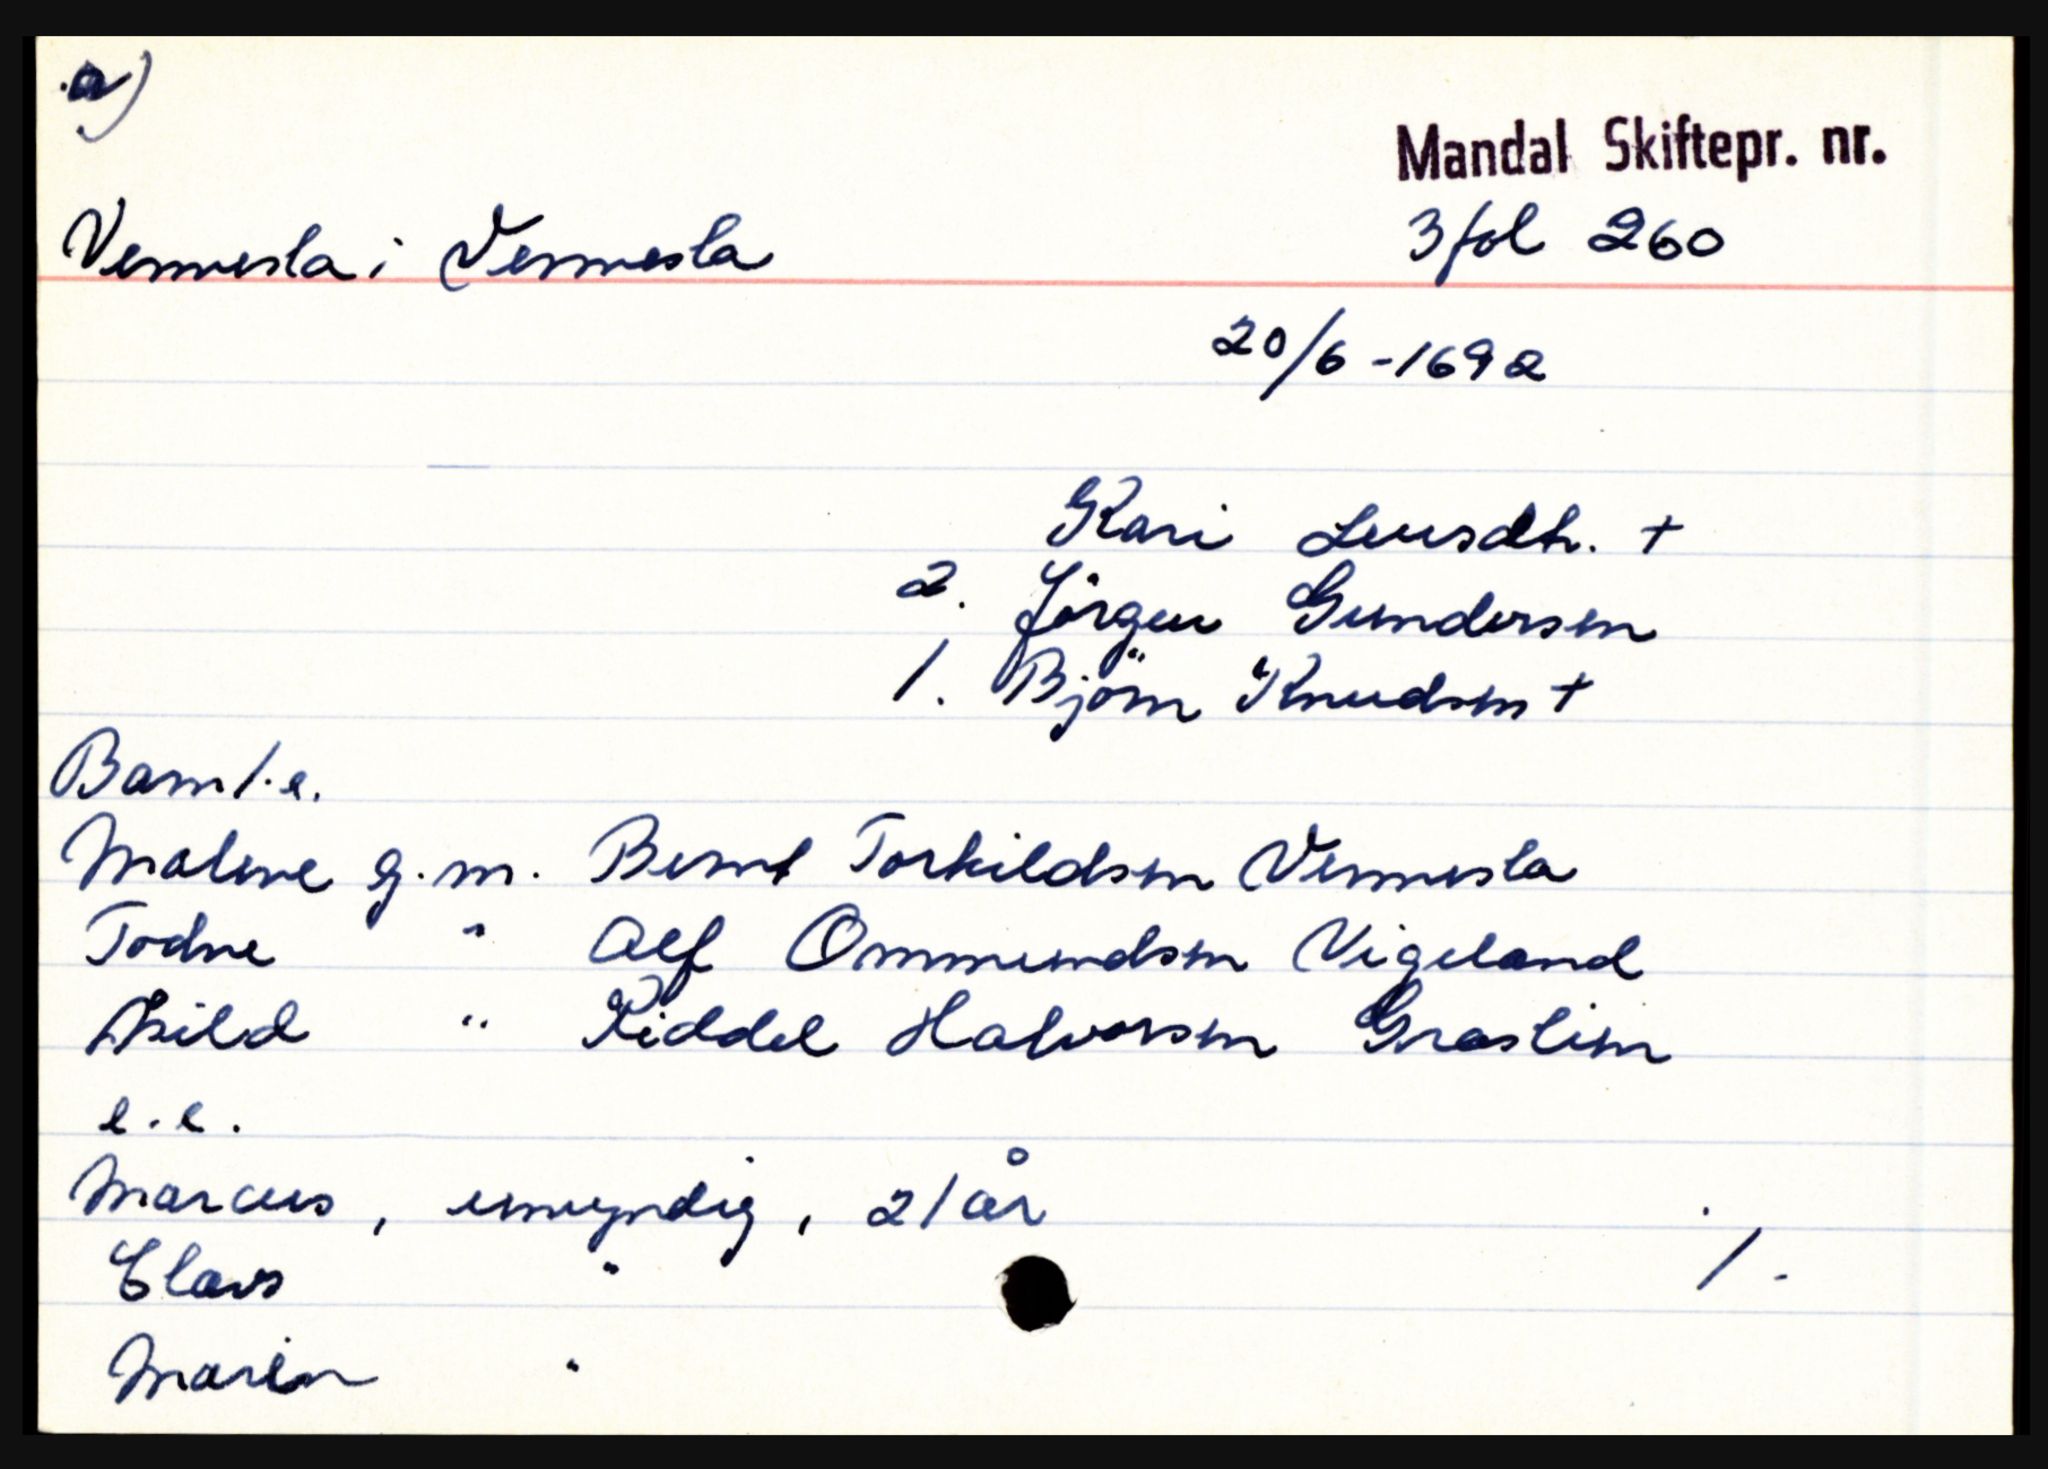 a)
Mandal Skiftepr. nr.
Vennesla i Vennesla 3 fol 260
20/6 - 1692
Kari Leusdtr. +
2. Jörgen Gundersen
1. Björn Knudsen +
Barn 1. e.
Malene g. m. Bernt Torkildsen Vennesla
Todne " Alf Ommundsen Vigeland
Askild " Kiddel Halvorsen Graslien
2. e.
Marcus, umyndig, 21 år
Claus " 1.
Maren "